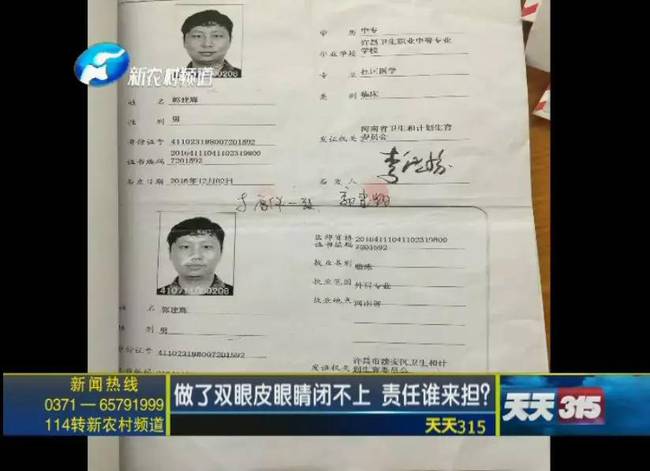 新农村频道
学 历 中专
毕业学校 许昌卫生职业中等专业
学校
专 业 社区医学
类 别 临床
姓 名 郭建辉
性 别 男
身份证号 411023198007201592
证书编码 20164111041102319800
7201592
签发日期 2016年12月02日
发证机关 河南省卫生和计划生育
委员会
签发人
医师资格 20164111041102319800
证书编码 7201592
执业类别 临床
执业范围 外科专业
执业地点 河南省
姓 名 郭建辉
性 别 男
身份证号 411023198007201592
发证机关 许昌市建安区卫生和计
划生育委员会
新闻热线
0371—65791999
114转新农村频道
做了双眼皮眼睛闭不上 责任谁来担?
天天315
天天315